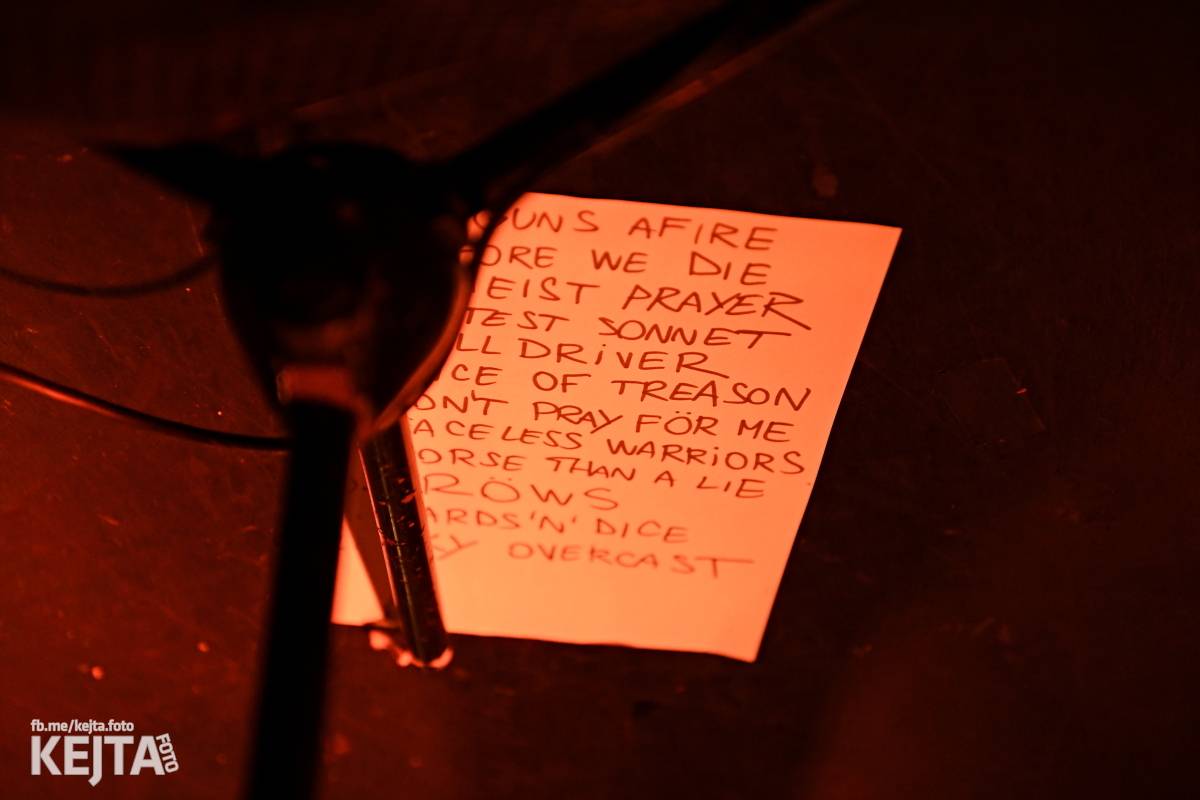 GUNS AFIRE
ORE WE DIE
EIST PRAYER
TEST SONNET
LL DRiVER
ICE OF TREASON
ON'T PRAY FÖR ME
ACELESS WARRiORS
ORSE THAN A LIE
RÖWS
ARDS'N'DICE
SY OVERCAST
fb.me/kejta.foto
KEJTA FOTO